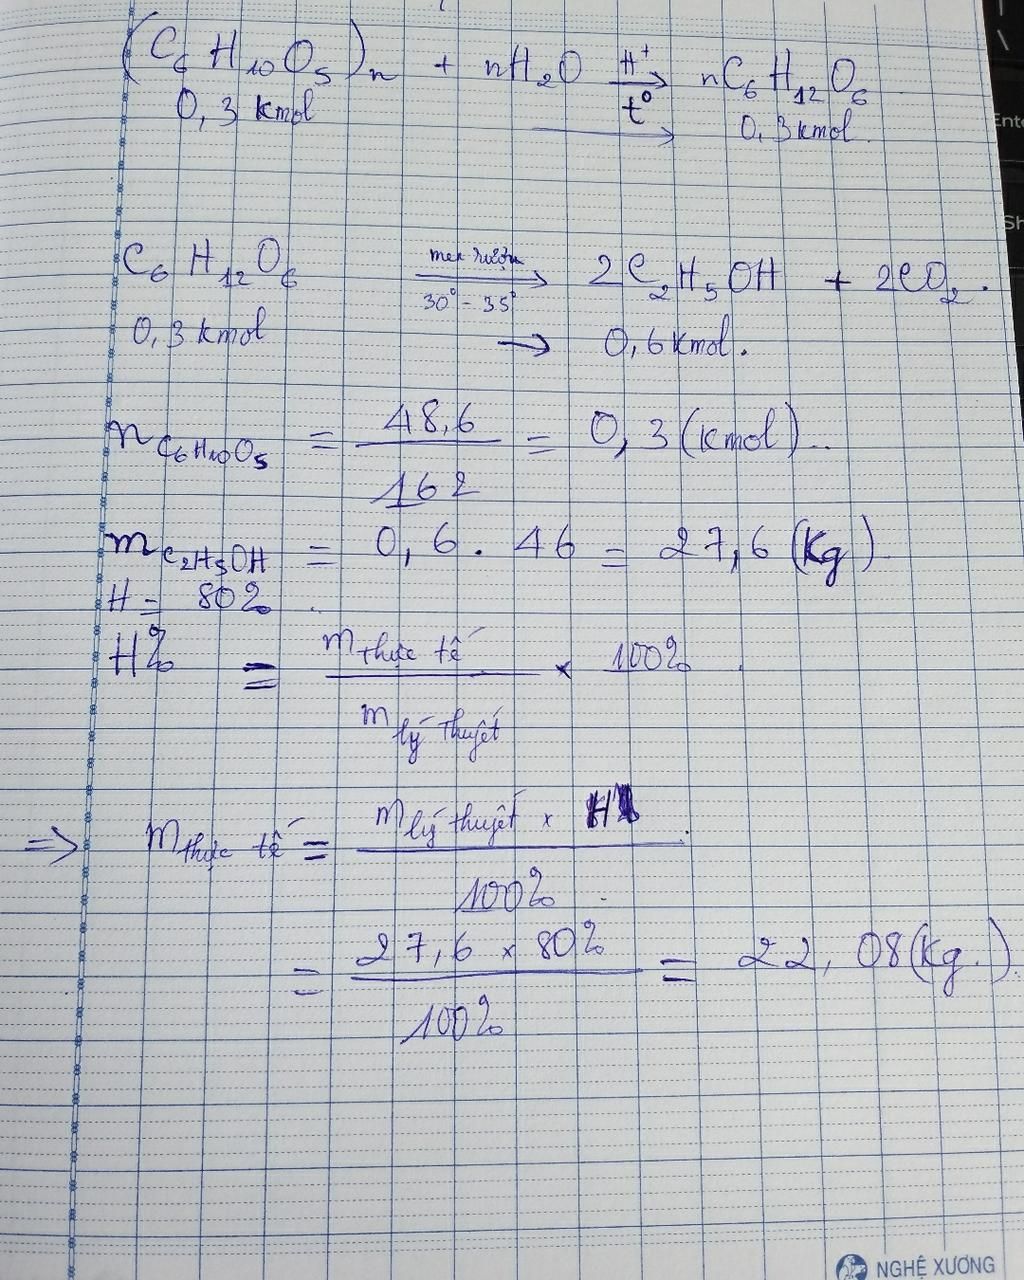 (C6H10O5)n + nH2O H+ t° → nC6H12O6
0,3 kmol → 0,3 kmol.
C6H12O6 men rượu 30° - 35° → 2C2H5OH + 2CO2.
0,3 kmol → 0,6 kmol.
nC6H10O5 = 48,6 / 162 = 0,3 (kmol)..
mC2H5OH = 0,6 . 46 = 27,6 (kg)
H = 80%.
H% = m thực tế / m lý thuyết × 100%.
=> m thực tế = m lý thuyết × H% / 100%.
= 27,6 × 80% / 100% = 22,08 (kg.).
NGHỆ XƯƠNG
Ente
Sh